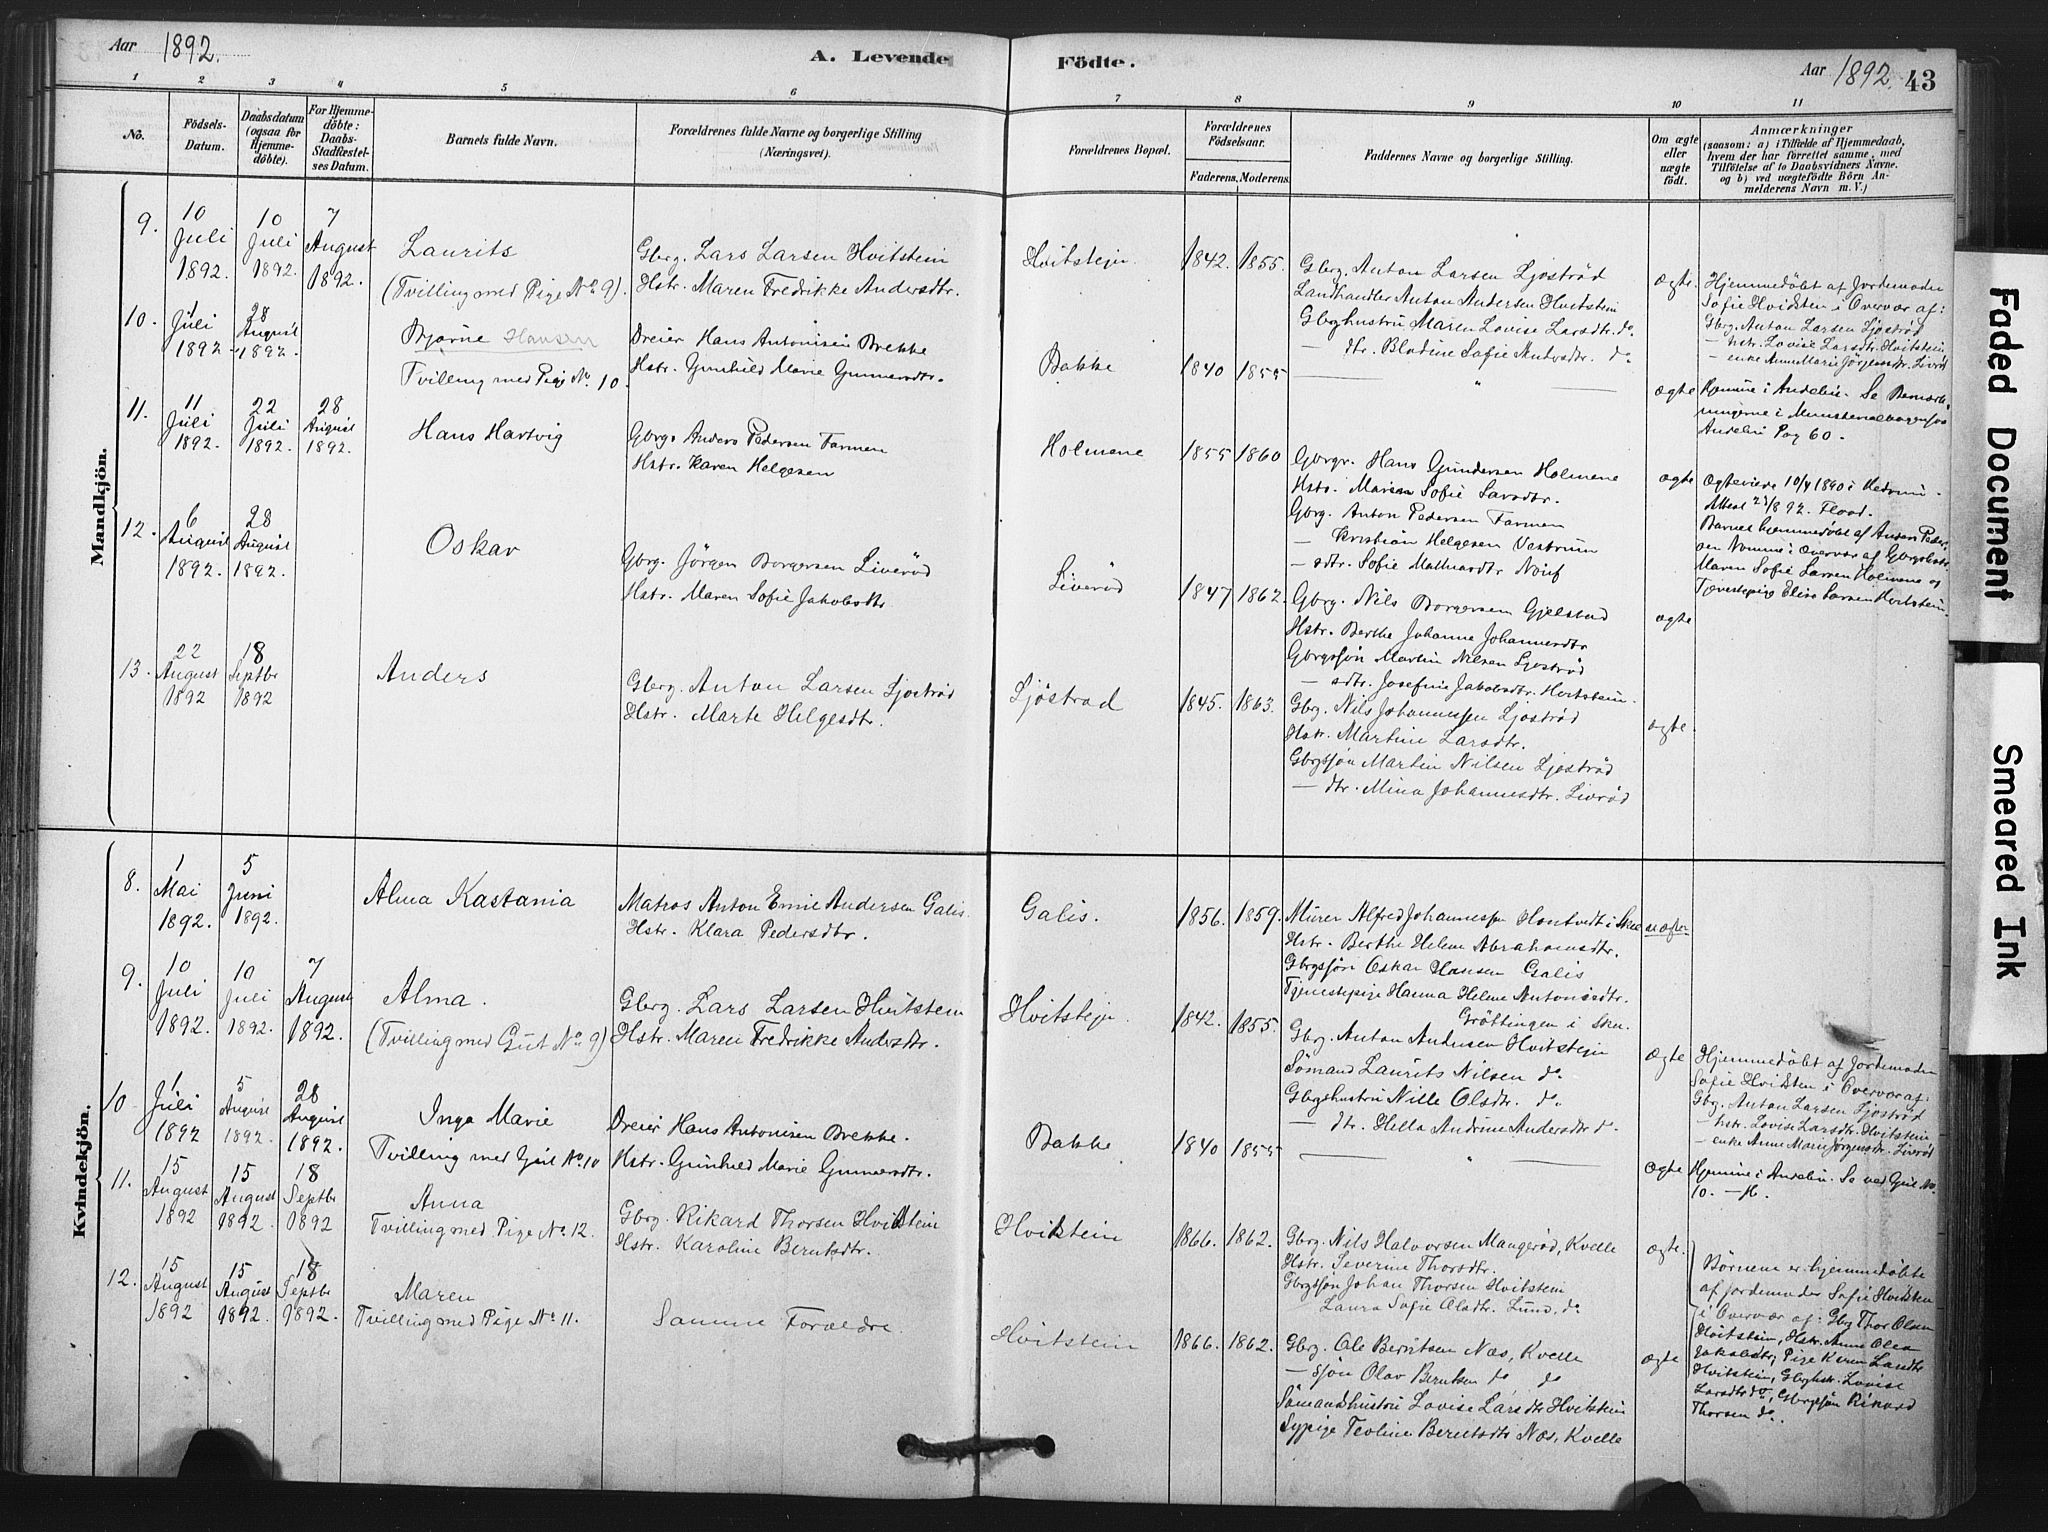 Aar 1892.
A. Levende Födte.
Aar 1892. 43
1 2 3 4 5 6 7 8 9 10 11
No.
Födsels-
Datum.
Daabsdatum
(ogsaa for
Hjemme-
döbte).
For Hjemme-
döbte:
Daabs-
Stadfæstel-
ses Datum.
Barnets fulde Navn.
Forældrenes fulde Navne og borgerlige Stilling
(Næringsvei).
Forældrenes Bopæl.
Forældrenes
Födselsaar.
Faderens. Moderens.
Faddernes Navne og borgerlige Stilling.
Om ægte
eller
uægte
födt.
Anmærkninger
(saasom: a) i Tilfælde af Hjemmedaab,
hvem der har forrettet samme, med
Tilföielse af to Daabsvidners Navne.
og b) ved uægtefödte Börn An-
melderens Navn m. V.)
Mandkjön.
9.
10
Juli
1892.
10
Juli
1892.
7
August
1892.
Laurits
(Tvilling med Pige No. 9).
Gbrg. Lars Larsen Hvitstein
Hstr. Maren Fredrikke Andersdtr.
Hvitstejn.
1842. 1855.
Gbrg. Anton Larsen Ljostrød
Landhandler Anton Andersen Hvitstein
Gbrghustru Maren Lovise Larsdtr. do
— dtr. Sofie Andersdtr. do
ægte.
Hjemmedöbt af Jordemoder
Sofie Hvidsten i Overvær af:
Gbrg. Anton Larsen Ljostrød
— hstr. Lovise Larsdtr. Hvitstein
— enke Anne Marie Jörgensdtr. Liverød
10.
1
Juli
1892
28
August
1892.
Bjarne Hansen
Tvilling med Pige No. 10.
Dreier Hans Antonisen Brekke
Hstr. Gunhild Marie Gunnersdtr.
Bakke
1840 1855
— " —
ægte
Hjemme i Andebu. Se
i
Andebu Pag 60.
11.
11
Juli
1892.
22
Juli
1892.
28
August
1892.
Hans Hartvig
Gbrg. Anders Pedersen Farmen
Hstr. Karen Helgesen
Holmene
1855 1860
Gbrgr. Hans Gundersen Holmene
Hstr. Maren Sofie Larsdtr.
Gbrg. Anton Pedersen Farmen
— Kristian Helgesen Vestrum
— sdtr. Sofie
ægte
Ægteviede 10/4 1890 i Hedrum.
Attest 23/8 92. Flood.
Barnet hjemmedöbt af Anders Peder-
sen i Overvær af
Maren Sofie Larsen Holmene og
Tjenestepige Elise Larsen Hvitstein.
12.
6
August
1892.
28
August
1892.
Oskar
Gbrg. Jörgen Borgersen Liverød
Hstr. Maren Sofie Jakobsdtr
Liverød
1847 1862.
Gbrg. Nils Borgersen Gjelstad
Hstr. Berthe Johanne Johannesdtr
Gbrgsjön Martin Nilsen Ljostrød
— sdtr. Josefine Jakobsdtr. Hvitstein.
ægte
13.
22
August
1892
18
Septbr
1892
Anders
Gbrg. Anton Larsen Ljostrød
Hstr. Marte Helgesdtr.
Ljöstrad
1845. 1863.
Gbrg. Nils Johannessen Ljostrød
Hstr. Martine Larsdtr.
Gbrgsjön Martin Nilsen Ljostrød
— dtr. Mina Johannesdtr. Livrød
ægte.
Kvindekjön.
8.
1
Mai
1892.
5
Juni
1892.
Alma Kastania
Matros Anton Emil Andersen Galis.
Hstr. Klara Pedersdtr.
Galis.
1856. 1859.
Murer Alfred Johannessen Hontvedt i Skee
Hstr. Berthe Helene Abrahamsdtr.
Gbrgsjön Oskar Hansen Galis
Tjenestepige Hanna Helene Antonisdtr.
Gröttingen i Skee.
uægte
9.
10
Juli
1892.
10
Juli
1892.
7
August
1892.
Alma.
(Tvilling med Gut No. 9)
Gbrg. Lars Larsen Hvitstein
Hstr. Maren Fredrikke Andersdtr.
Hvitstejn.
1842. 1855.
Gbrg. Anton Andersen Hvitstejn
Sömand Laurits Nilsen do.
Gbrghustru Nille Olsdtr. do.
— dtr. Hella Andrine Andersdtr do.
ægte
Hjemmedöbt af Jordemoder
Sofie Hvidsten i Overvær af:
Gbg. Anton Larsen Ljostrød
— hstr. Lovise Larsdtr. Hvitstein
— enke Anne Marie Jörgensdtr. Liverød
10.
1
Juli
1892
5
August
1892.
28
August
1892.
Inga Marie
Tvilling med Gut No. 10
Dreier Hans Antonisen Brekke.
Hstr. Gunhild Marie Gunnersdtr.
Bakke
1840 1855
— " —
ægte
Hjemme i Andebu. Se ved Gut No.
10. — H.
11.
15
August
1892
15
August
1892
18
Septbr
1892
Anna
Tvilling med Pige No. 12.
Gbrg. Rikard Thorsen Hvidstein
Hstr. Karoline Berntsdtr.
Hvidstein
1866. 1862.
Gbrg. Nils Halvorsen Maugerød, Kvelle
Hstr. Severine Thorsdtr.
Gbrgsjön Johan Thorsen Hvitstein
Laura Sofie Olsdtr. Lund, do
ægte.
Börnene er hjemmedöbte
af jordemoder Sofie Hvidsten
i Overvær af: Gbg Thor Olsen
Hvitstein, Hstr. Anne Olea
Jakobsdtr, Pige Karen Larsdtr
Hvitstein, Gbrghstr. Lovise
Larsdtr do, Gbrgsjön Rikard
Thorsen do.
12.
15
August
1892
15
August
1892.
18
Septbr
1892.
Maren
Tvilling med Pige No. 11.
Samme Forældre.
Hvitstein
1866. 1862.
Gbrg. Ole Berntsen Næs, Kvelle
— sjön Olav Berntsen do do
Sömandshustru Lovise Larsdtr Hvitstein
Sypige Teoline Berntsdtr Næs, Kvelle
ægte
Faded Document
Smeared Ink